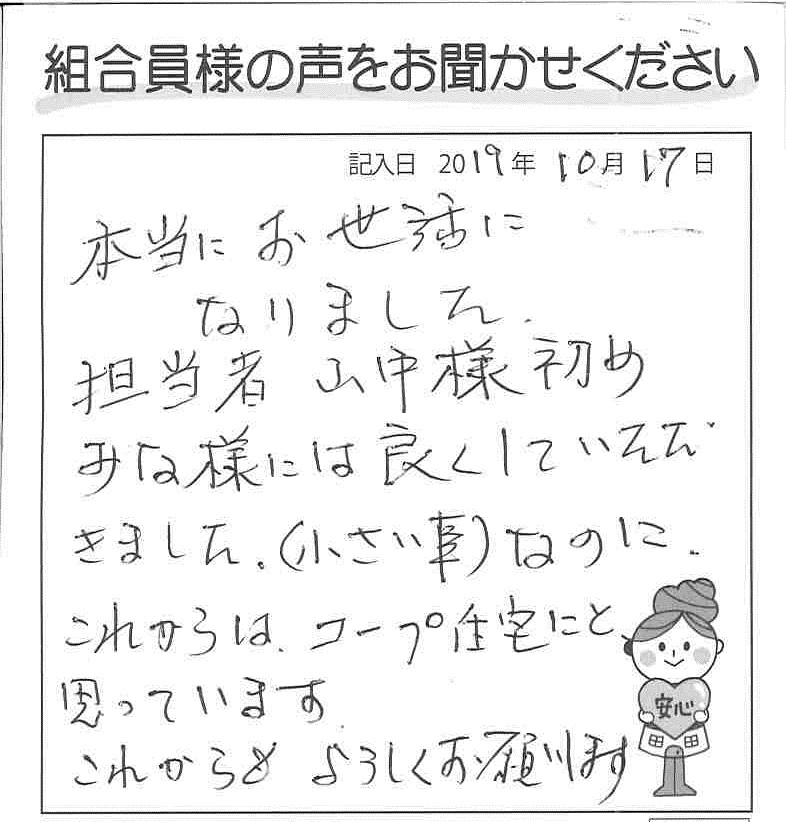 組合員様の声をお聞かせください
記入日 2019年 10月 17日
本当に お世話に
なりました.
担当者 山中様 初め
みな様には良くしていただ
きました。(小さい事)なのに.
これからは、コープ住宅にと、
思っています.
これからも よろしくお願います
安心